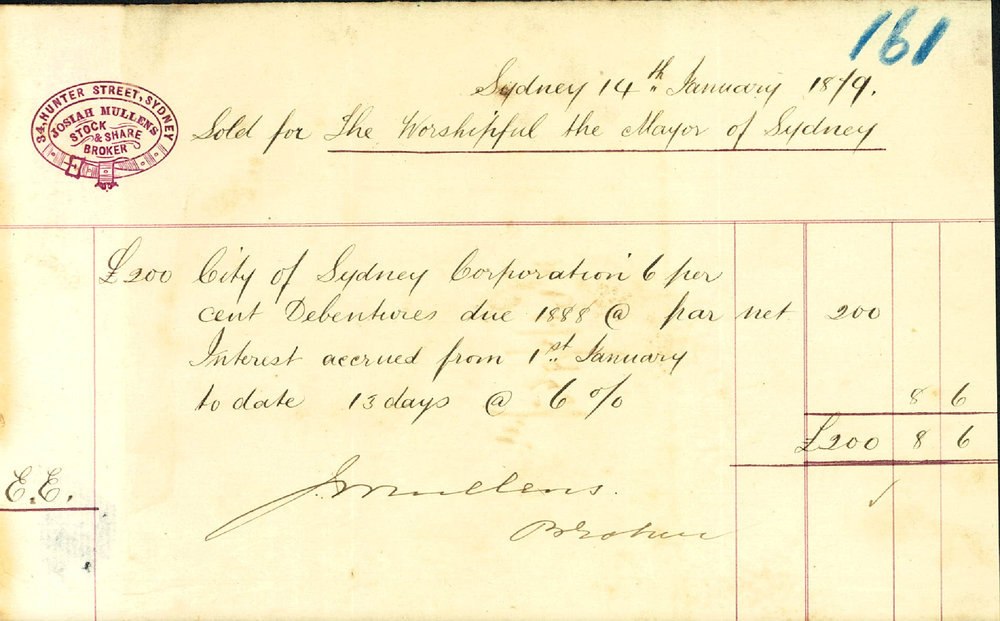 161
Sydney 14th January 1879.
34, HUNTER STREET, SYDNEY
JOSIAH MULLENS
STOCK
& SHARE
BROKER
Sold for The Worshipful the Mayor of Sydney
£200 City of Sydney Corporation 6 per
cent Debentures due 1888 @ par net 200
Interest accrued from 1st January
to date 13 days @ 6 % 8 6
£200 8 6
E.E.
J Mullens.
Broker